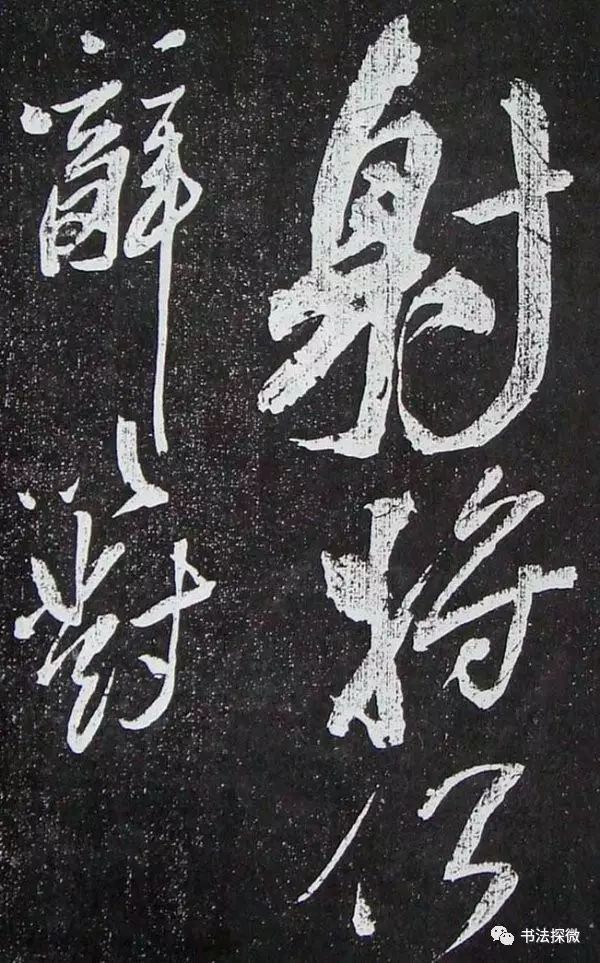 射將何
辭以對
书法探微